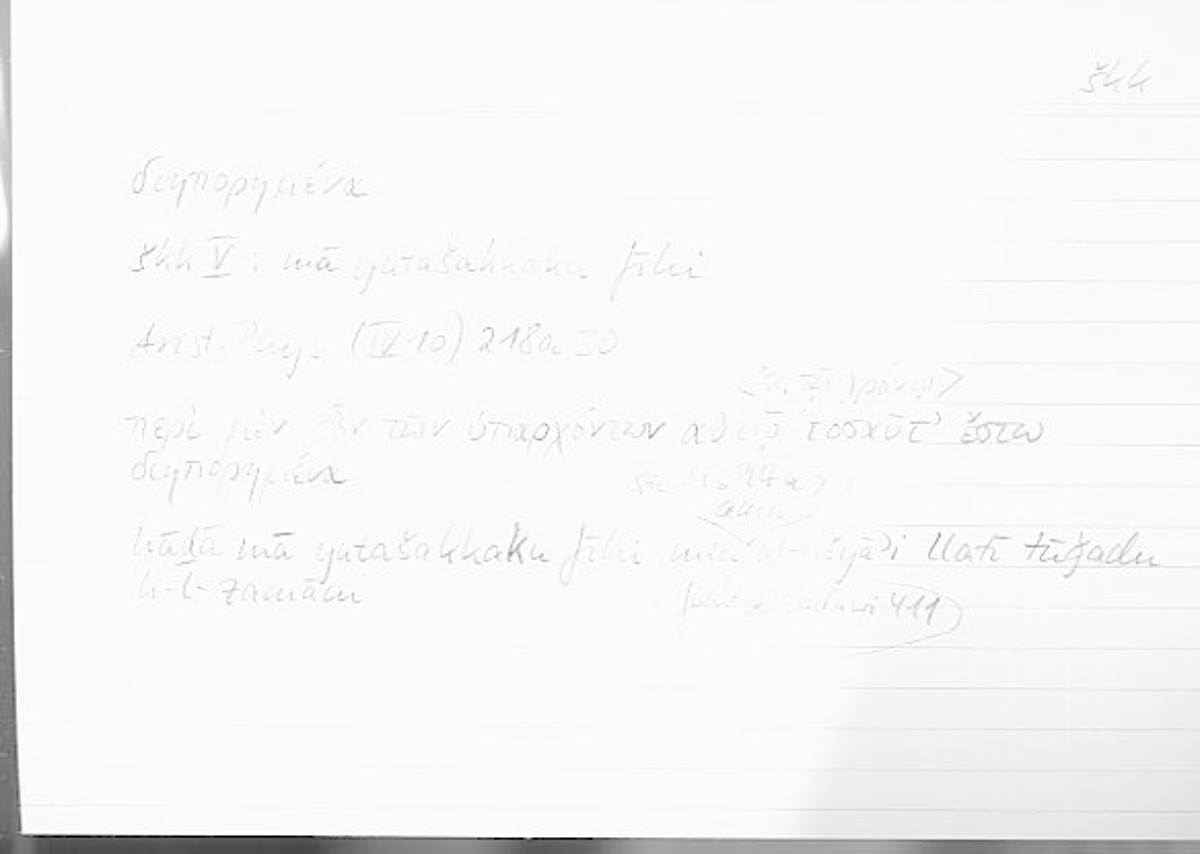 škk
διηπορημένα
škk V : mā yutašakkaku fīhi
Arist. Phys. (IV 10) 218a 30
<τῷ χρόνῳ>
περὶ μὲν οὖν τῶν ὑπαρχόντων αὐτῷ τοσαῦτ' ἔστω
διηπορημένα
sic
hāḏā mā yutašakkaku fīhi mina l-ašyāʾi llatī tūǧadu
li-l-zamāni
411)